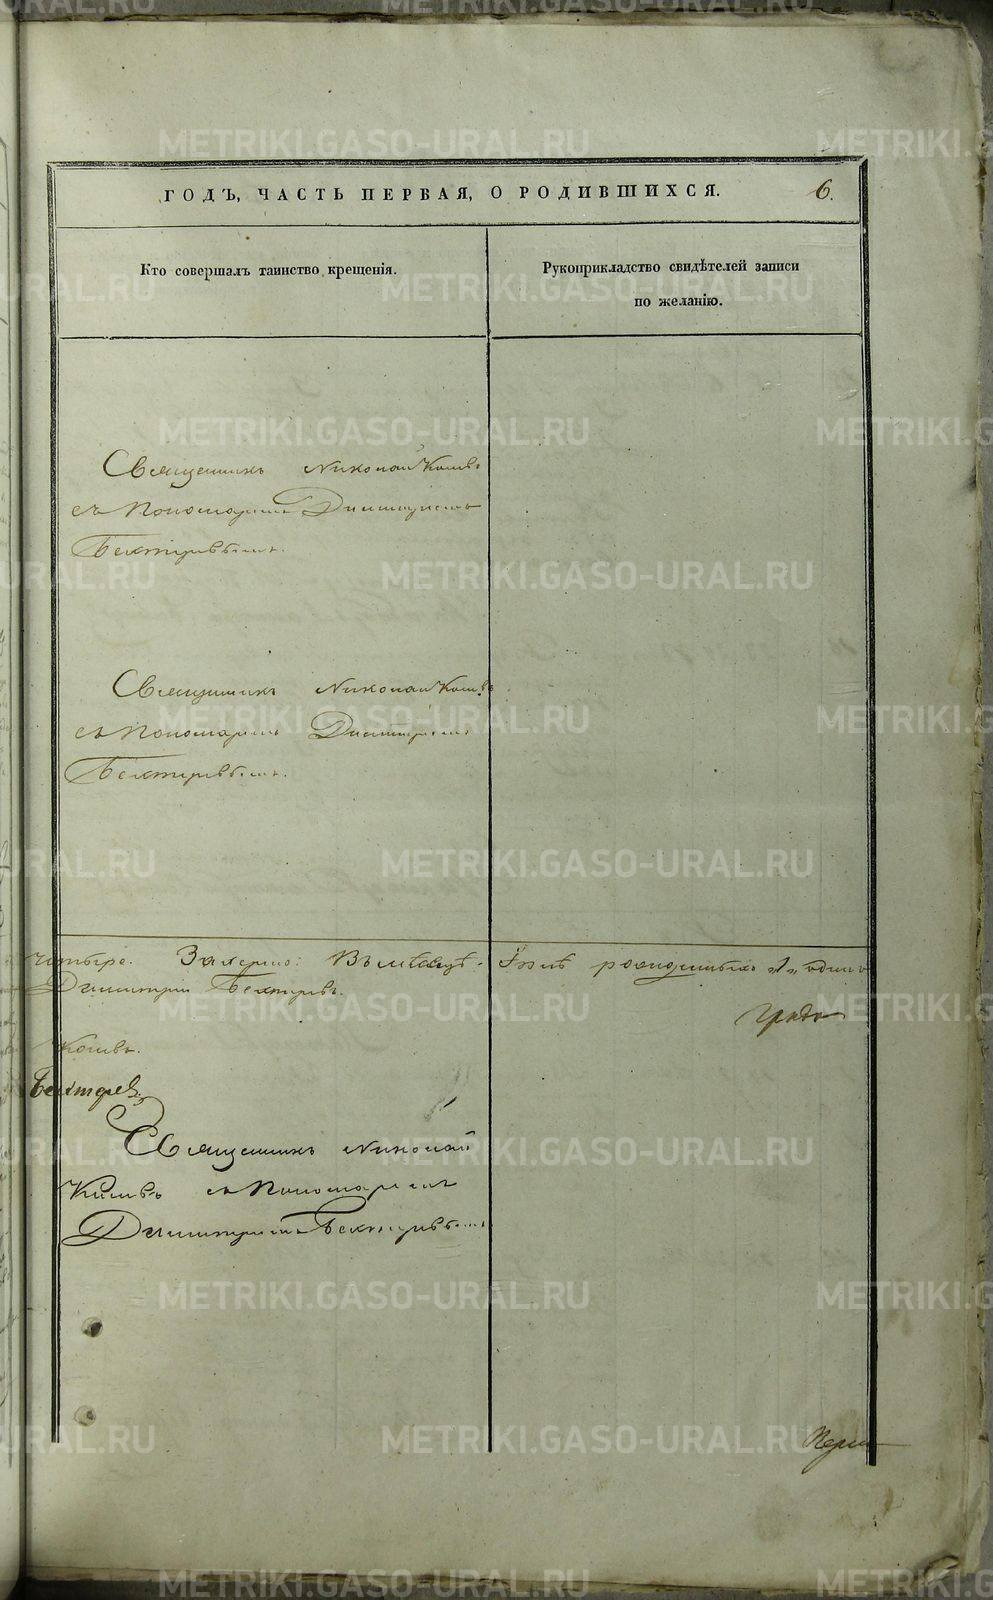 ГОДЪ, ЧАСТЬ ПЕРВАЯ, О РОДИВШИХСЯ. 6.
Кто совершалъ таинство крещенія.
Рукоприкладство свидѣтелей записи
по желанію.
Священникъ Николай
съ Пономаремъ Димитріемъ
Бехтеревымъ.
Священникъ Николай
съ Пономаремъ Димитріемъ
Бехтеревымъ.
четыре. Въ мѣсяцѣ
Димитрій Бехтеревъ.
Бехтерев
Священникъ Николай
съ Пономаремъ
Димитріемъ Бехтеревымъ
METRIKI.GASO-URAL.RU